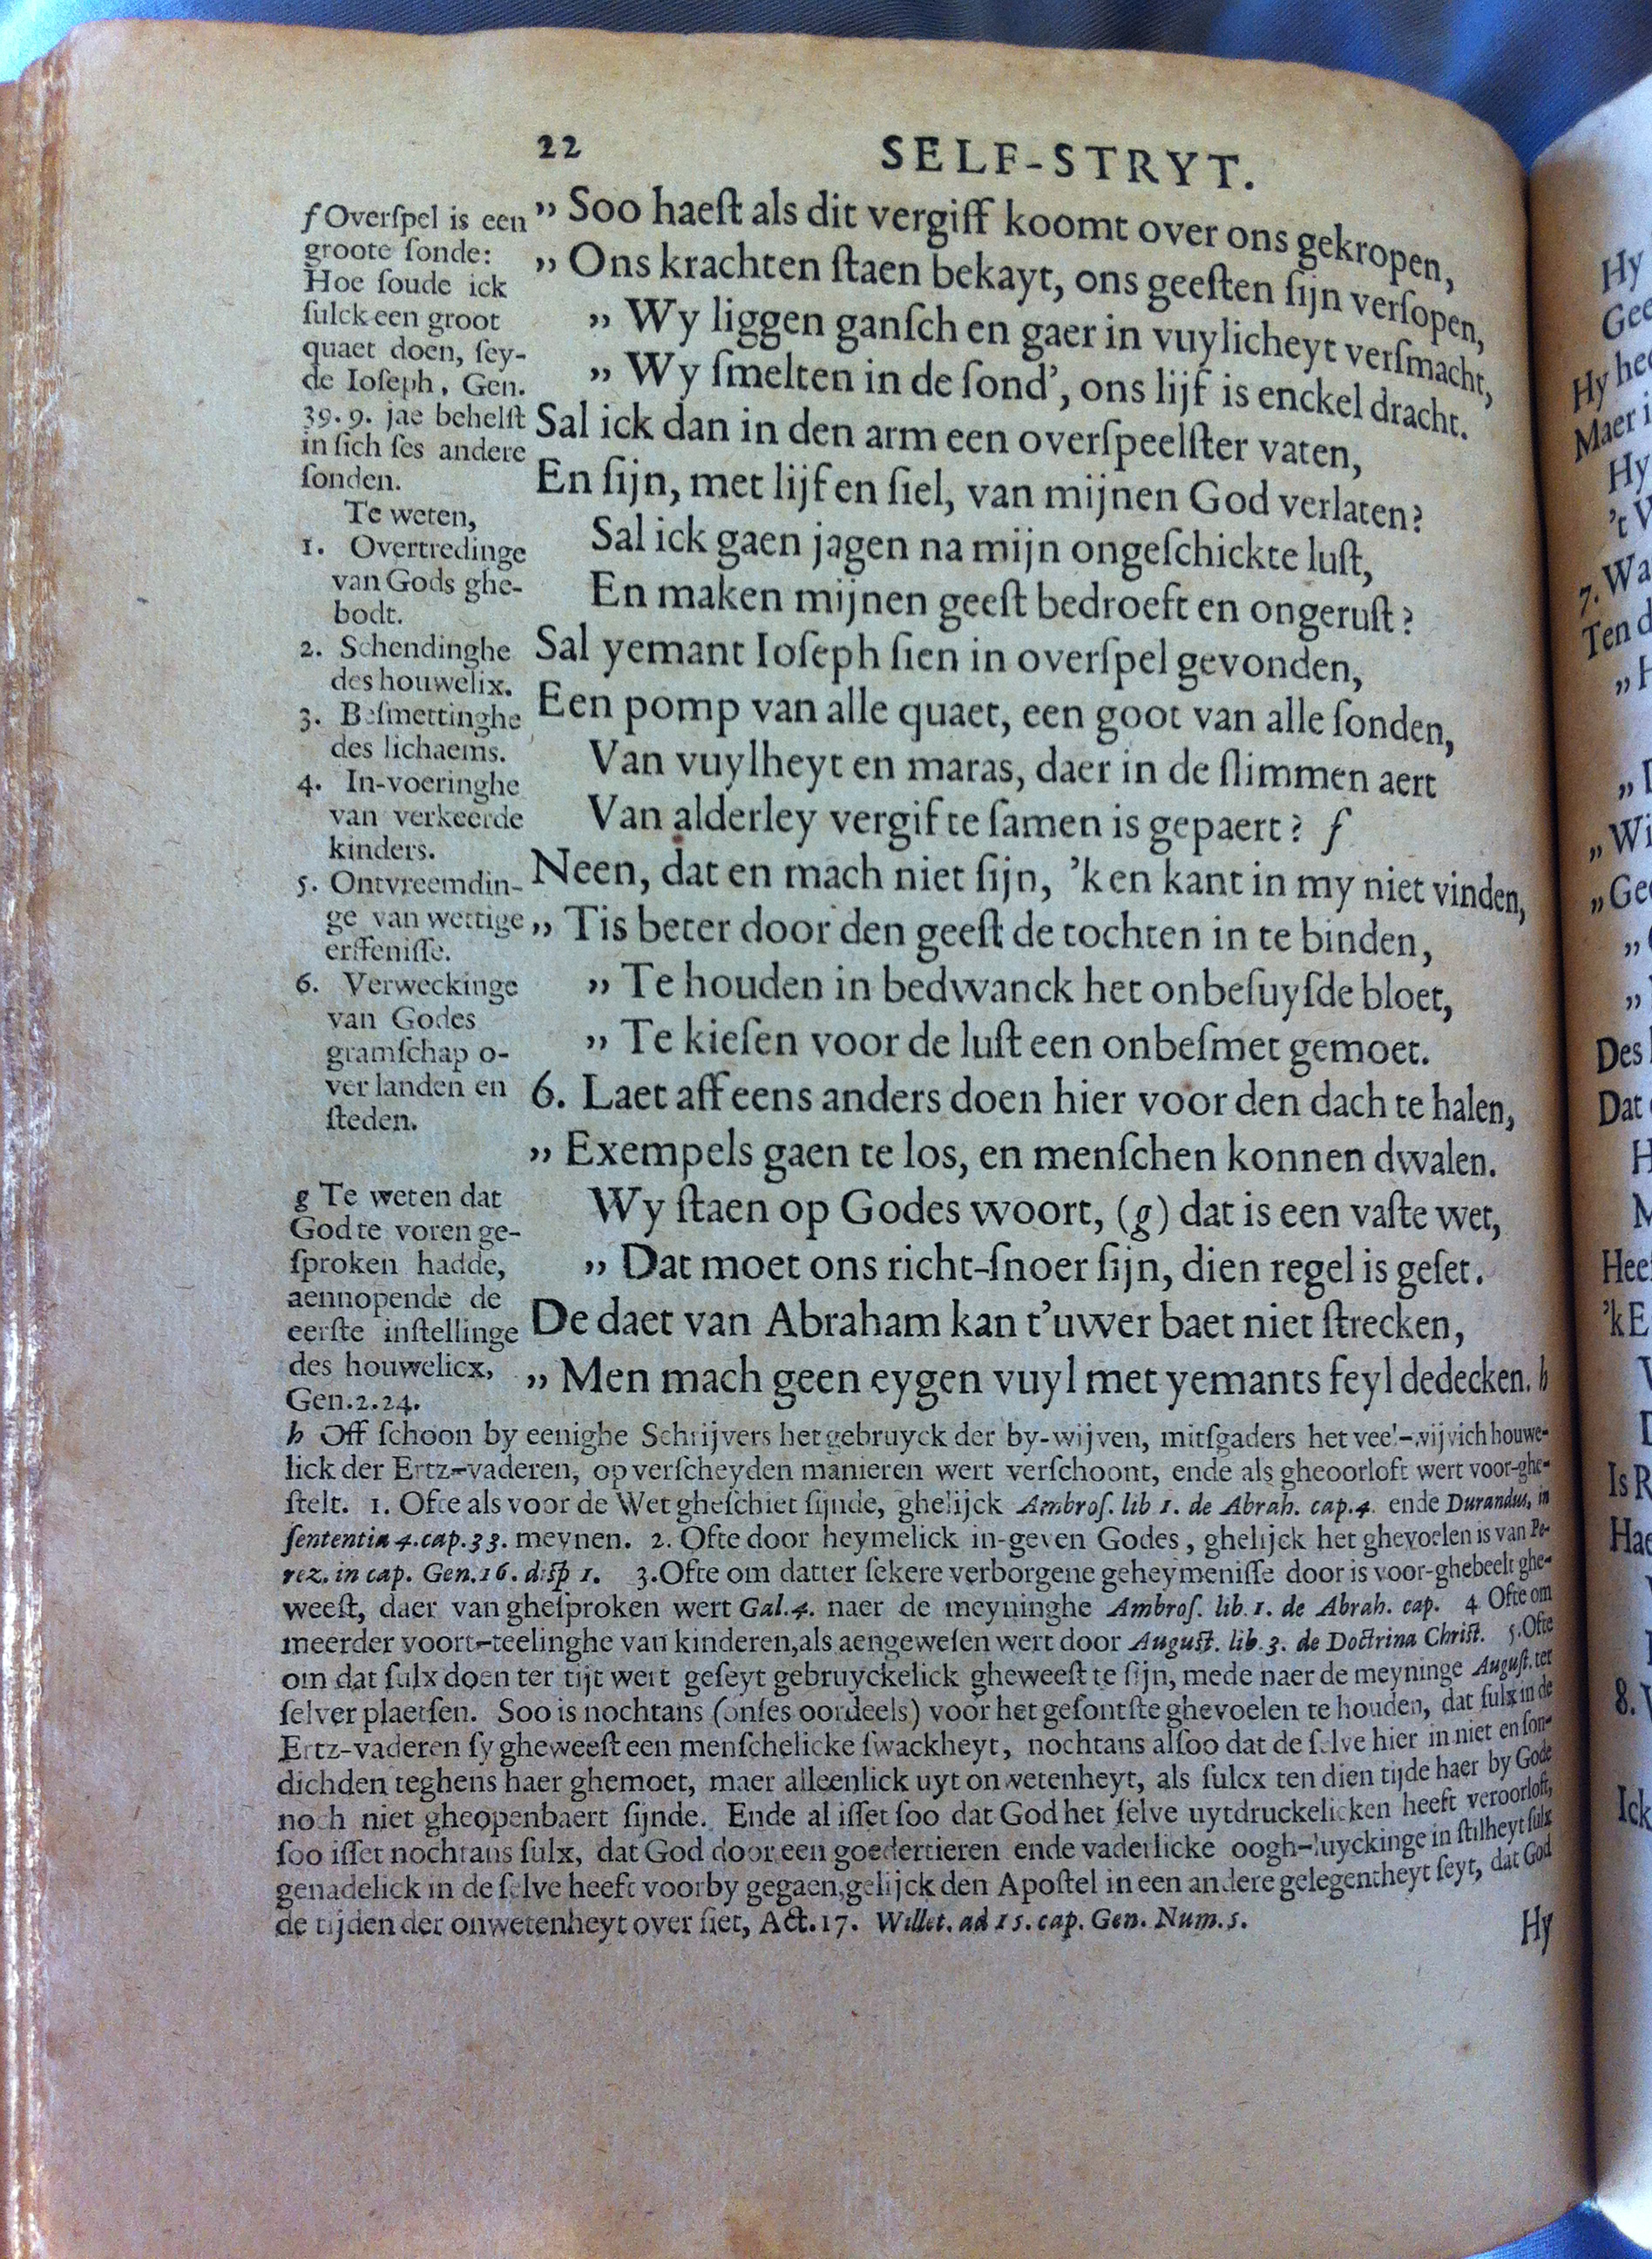 22
SELF-STRYT.
f Overſpel is een
groote ſonde:
Hoe ſoude ick
ſulck een groot
quaet doen, ſey-
de Ioſeph, Gen.
39. 9. jae behelſt
in ſich ſes andere
ſonden.
Te weten,
1. Overtredinge
van Gods ghe-
bodt.
2. Schendinghe
des houwelix.
3. Beſmettinghe
des lichaems.
4. In-voeringhe
van verkeerde
kinders.
5. Ontvreemdin-
ge van wettige
erffeniſſe.
6. Verweckinge
van Godes
gramſchap o-
ver landen en
ſteden.
g Te weten dat
God te voren ge-
ſproken hadde,
aennopende de
eerſte inſtellinge
des houwelicx,
Gen. 2. 24.
„ Soo haeſt als dit vergiff koomt over ons gekropen,
„ Ons krachten ſtaen bekayt, ons geeſten ſijn verſopen,
„ Wy liggen ganſch en gaer in vuylicheyt verſmacht,
„ Wy ſmelten in de ſond', ons lijf is enckel dracht.
Sal ick dan in den arm een overſpeelſter vaten,
En ſijn, met lijf en ſiel, van mijnen God verlaten?
Sal ick gaen jagen na mijn ongeſchickte luſt,
En maken mijnen geeſt bedroeft en ongeruſt?
Sal yemant Ioſeph ſien in overſpel gevonden,
Een pomp van alle quaet, een goot van alle ſonden,
Van vuylheyt en maras, daer in de ſlimmen aert
Van alderley vergifte ſamen is gepaert? f
Neen, dat en mach niet ſijn, 'k en kant in my niet vinden,
„ Tis beter door den geeſt de tochten in te binden,
„ Te houden in bedwanck het onbeſuyſde bloet,
„ Te kieſen voor de luſt een onbeſmet gemoet.
6. Laet aff eens anders doen hier voor den dach te halen,
„ Exempels gaen te los, en menſchen konnen dwalen.
Wy ſtaen op Godes woort, (g) dat is een vaſte wet,
„ Dat moet ons richt-ſnoer ſijn, dien regel is geſet.
De daet van Abraham kan t'uwer baet niet ſtrecken,
„ Men mach geen eygen vuyl met yemants feyl dedecken. h
h Off ſchoon by eenighe Schrijvers het gebruyck der by-wijven, mitſgaders het veel-wijvich houwe-
lick der Ertz-vaderen, op verſcheyden manieren wert verſchoont, ende als gheoorloft wert voor-ghe-
ſtelt. 1. Ofte als voor de Wet gheſchiet ſijnde, ghelijck Ambroſ. lib 1. de Abrah. cap. 4. ende Durandus, in
ſententia 4. cap. 33. meynen. 2. Ofte door heymelick in-geven Godes, ghelijck het ghevoelen is van Pe-
rez. in cap. Gen. 16. diſp 1. 3. Ofte om datter ſekere verborgene geheymeniſſe door is voor-ghebeelt ghe-
weeſt, daer van gheſproken wert Gal. 4. naer de meyninghe Ambroſ. lib. 1. de Abrah. cap. 4 Ofte om
meerder voort-teelinghe van kinderen, als aengeweſen wert door Auguſt. lib. 3. de Doctrina Chriſt. 5. Ofte
om dat ſulx doen ter tijt wert geſeyt gebruyckelick gheweeſt te ſijn, mede naer de meyninge Auguſt. ter
ſelver plaetſen. Soo is nochtans (onſes oordeels) voor het geſontſte ghevoelen te houden, dat ſulx in de
Ertz-vaderen ſy gheweeſt een menſchelicke ſwackheyt, nochtans alſoo dat de ſelve hier in niet en ſon-
dichden teghens haer ghemoet, maer alleenlick uyt onwetenheyt, als ſulcx ten dien tijde haer by Gode
noch niet gheopenbaert ſijnde. Ende al iſſet ſoo dat God het ſelve uytdruckelicken heeft veroorloft,
ſoo iſſet nochtans ſulx, dat God door een goedertieren ende vaderlicke oogh-luyckinge in ſtilheyt ſulx
genadelick in de ſelve heeft voorby gegaen, gelijck den Apoſtel in een andere gelegentheyt ſeyt, dat God
de tijden der onwetenheyt over ſiet, Act. 17. Willet. ad 15. cap. Gen. Num. 5.
Hy